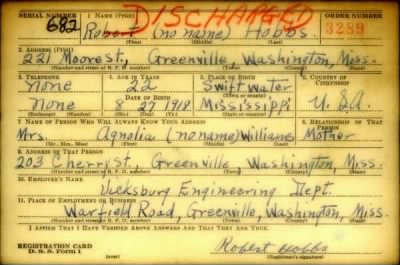 SERIAL NUMBER 1. NAME (Print) ORDER NUMBER
DISCHARGED
682 Robert (no name) Hobbs 3289
(First) (Middle) (Last)
2. ADDRESS (Print)
221 Moore st., Greenville Washington, Miss.
(Number and street or R. F. D. number) (Town) (County) (State)
3. TELEPHONE 4. AGE IN YEARS 5. PLACE OF BIRTH 6. COUNTRY OF CITIZENSHIP
None 22 Swift water
DATE OF BIRTH
None 8 27 1918 Mississippi U.S.A.
(Exchange) (Number) (Mo.) (Day) (Yr.) (State or country)
7. NAME OF PERSON WHO WILL ALWAYS KNOW YOUR ADDRESS 8. RELATIONSHIP OF THAT PERSON
Mrs. Agnolia (no name) Williams Mother
(Mr., Mrs., Miss) (First) (Middle) (Last)
9. ADDRESS OF THAT PERSON
203 Cherry St., Greenville, Washington, Miss.
(Number and street or R. F. D. number) (Town) (County) (State)
10. EMPLOYER'S NAME
Vicksburg Engineering Dept.
11. PLACE OF EMPLOYMENT OR BUSINESS
Warfield Road, Greenville, Washington, Miss.
(Number and street or R. F. D. number) (Town) (County) (State)
I AFFIRM THAT I HAVE VERIFIED ABOVE ANSWERS AND THAT THEY ARE TRUE.
REGISTRATION CARD
D. S. S. Form 1
Robert Hobbs
(Registrant's signature)